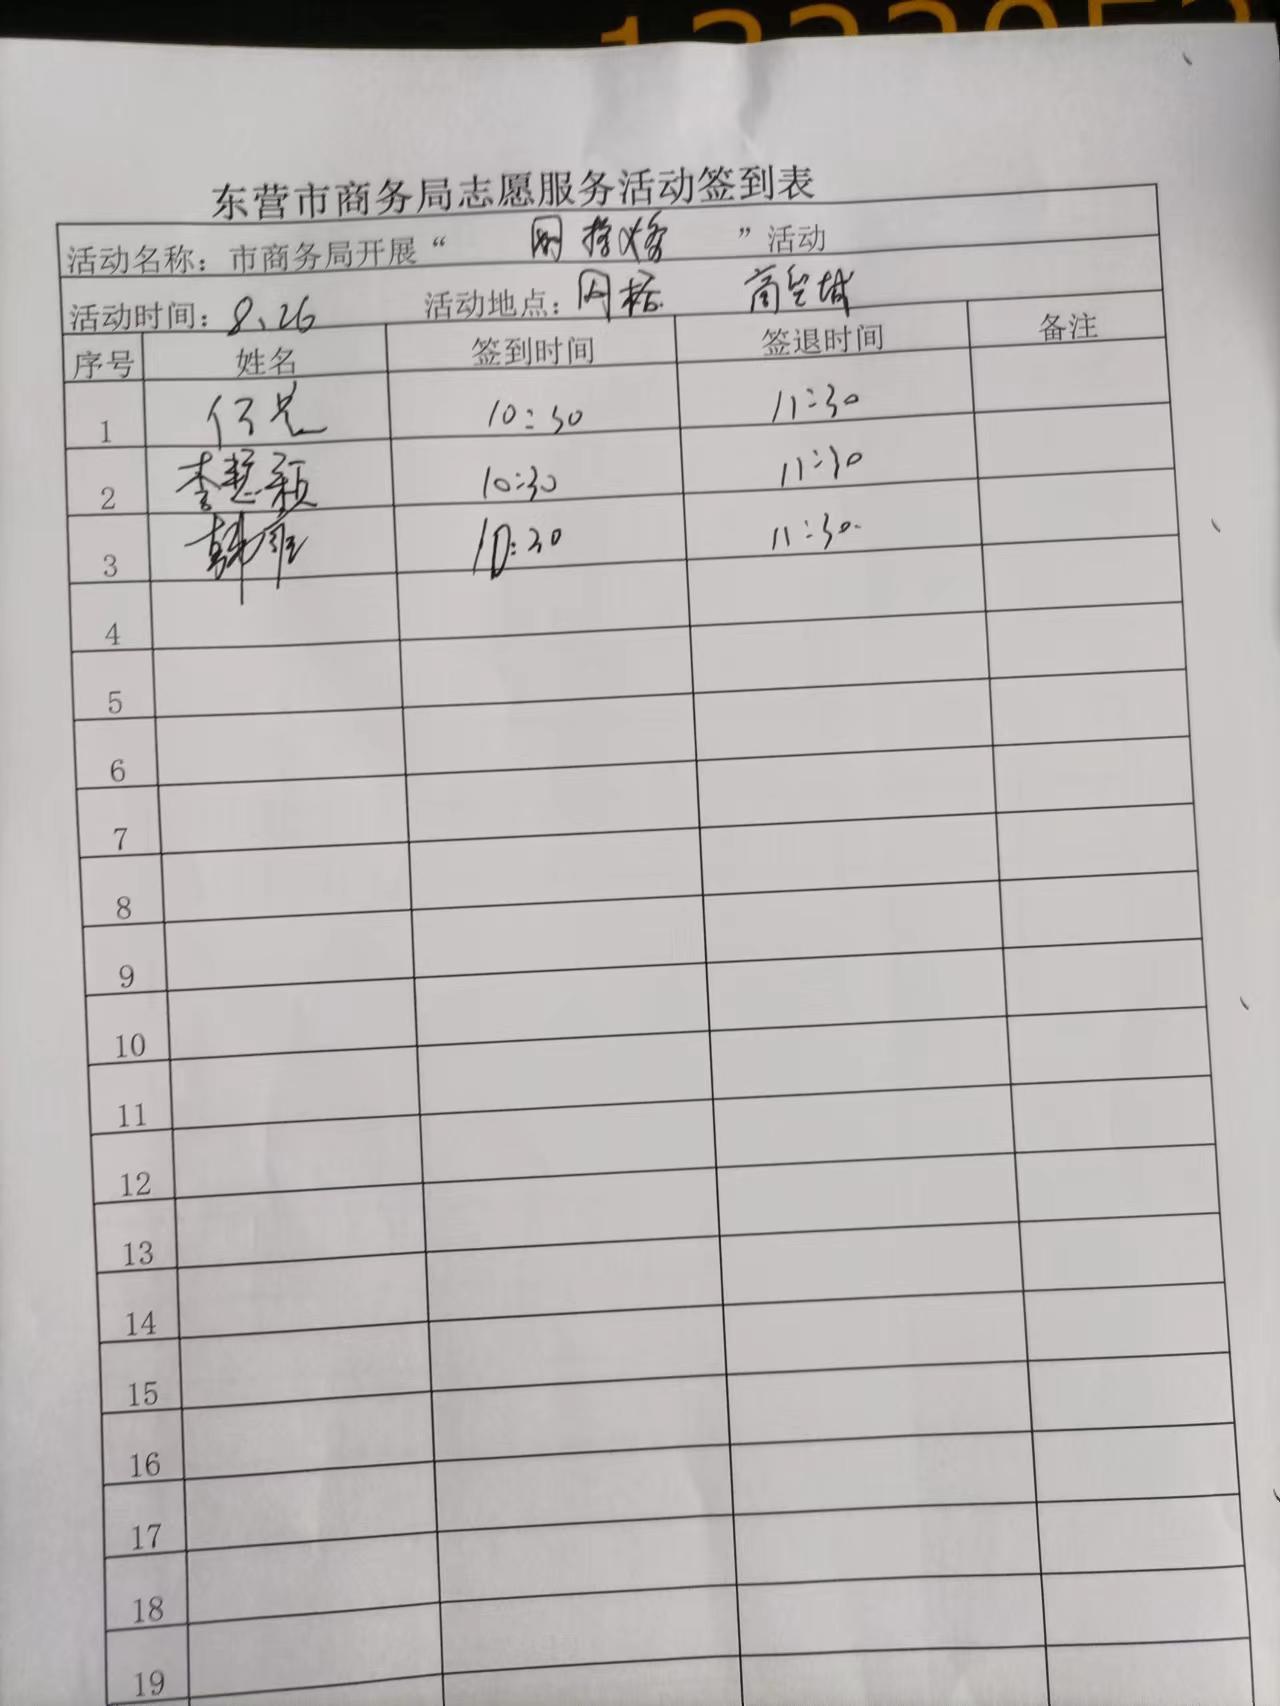 东营市商务局志愿服务活动签到表
活动名称：市商务局开展“ ”活动
活动时间：8.26 活动地点：网格 商贸城
序号 姓名 签到时间 签退时间 备注
1 10:30 11:30
2 李慧颖 10:30 11:30
3 韩雁 10:30 11:30
4
5
6
7
8
9
10
11
12
13
14
15
16
17
18
19